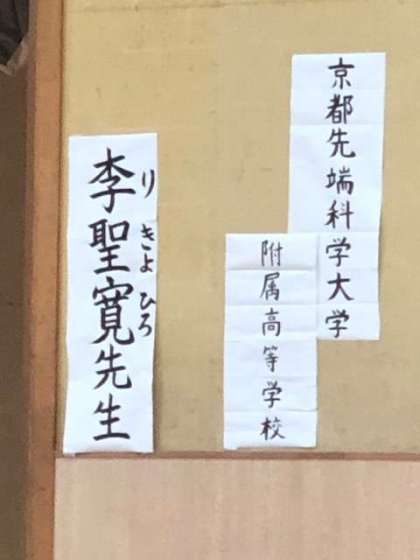 京都先端科学大学
附属高等学校
李聖寛先生
り きよ ひろ